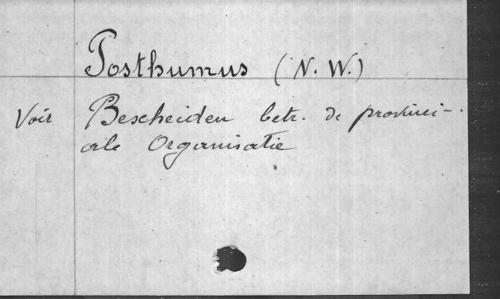 Posthumus (N. W.)
Voir Bescheiden betr. de provinci-
ale Organisatie